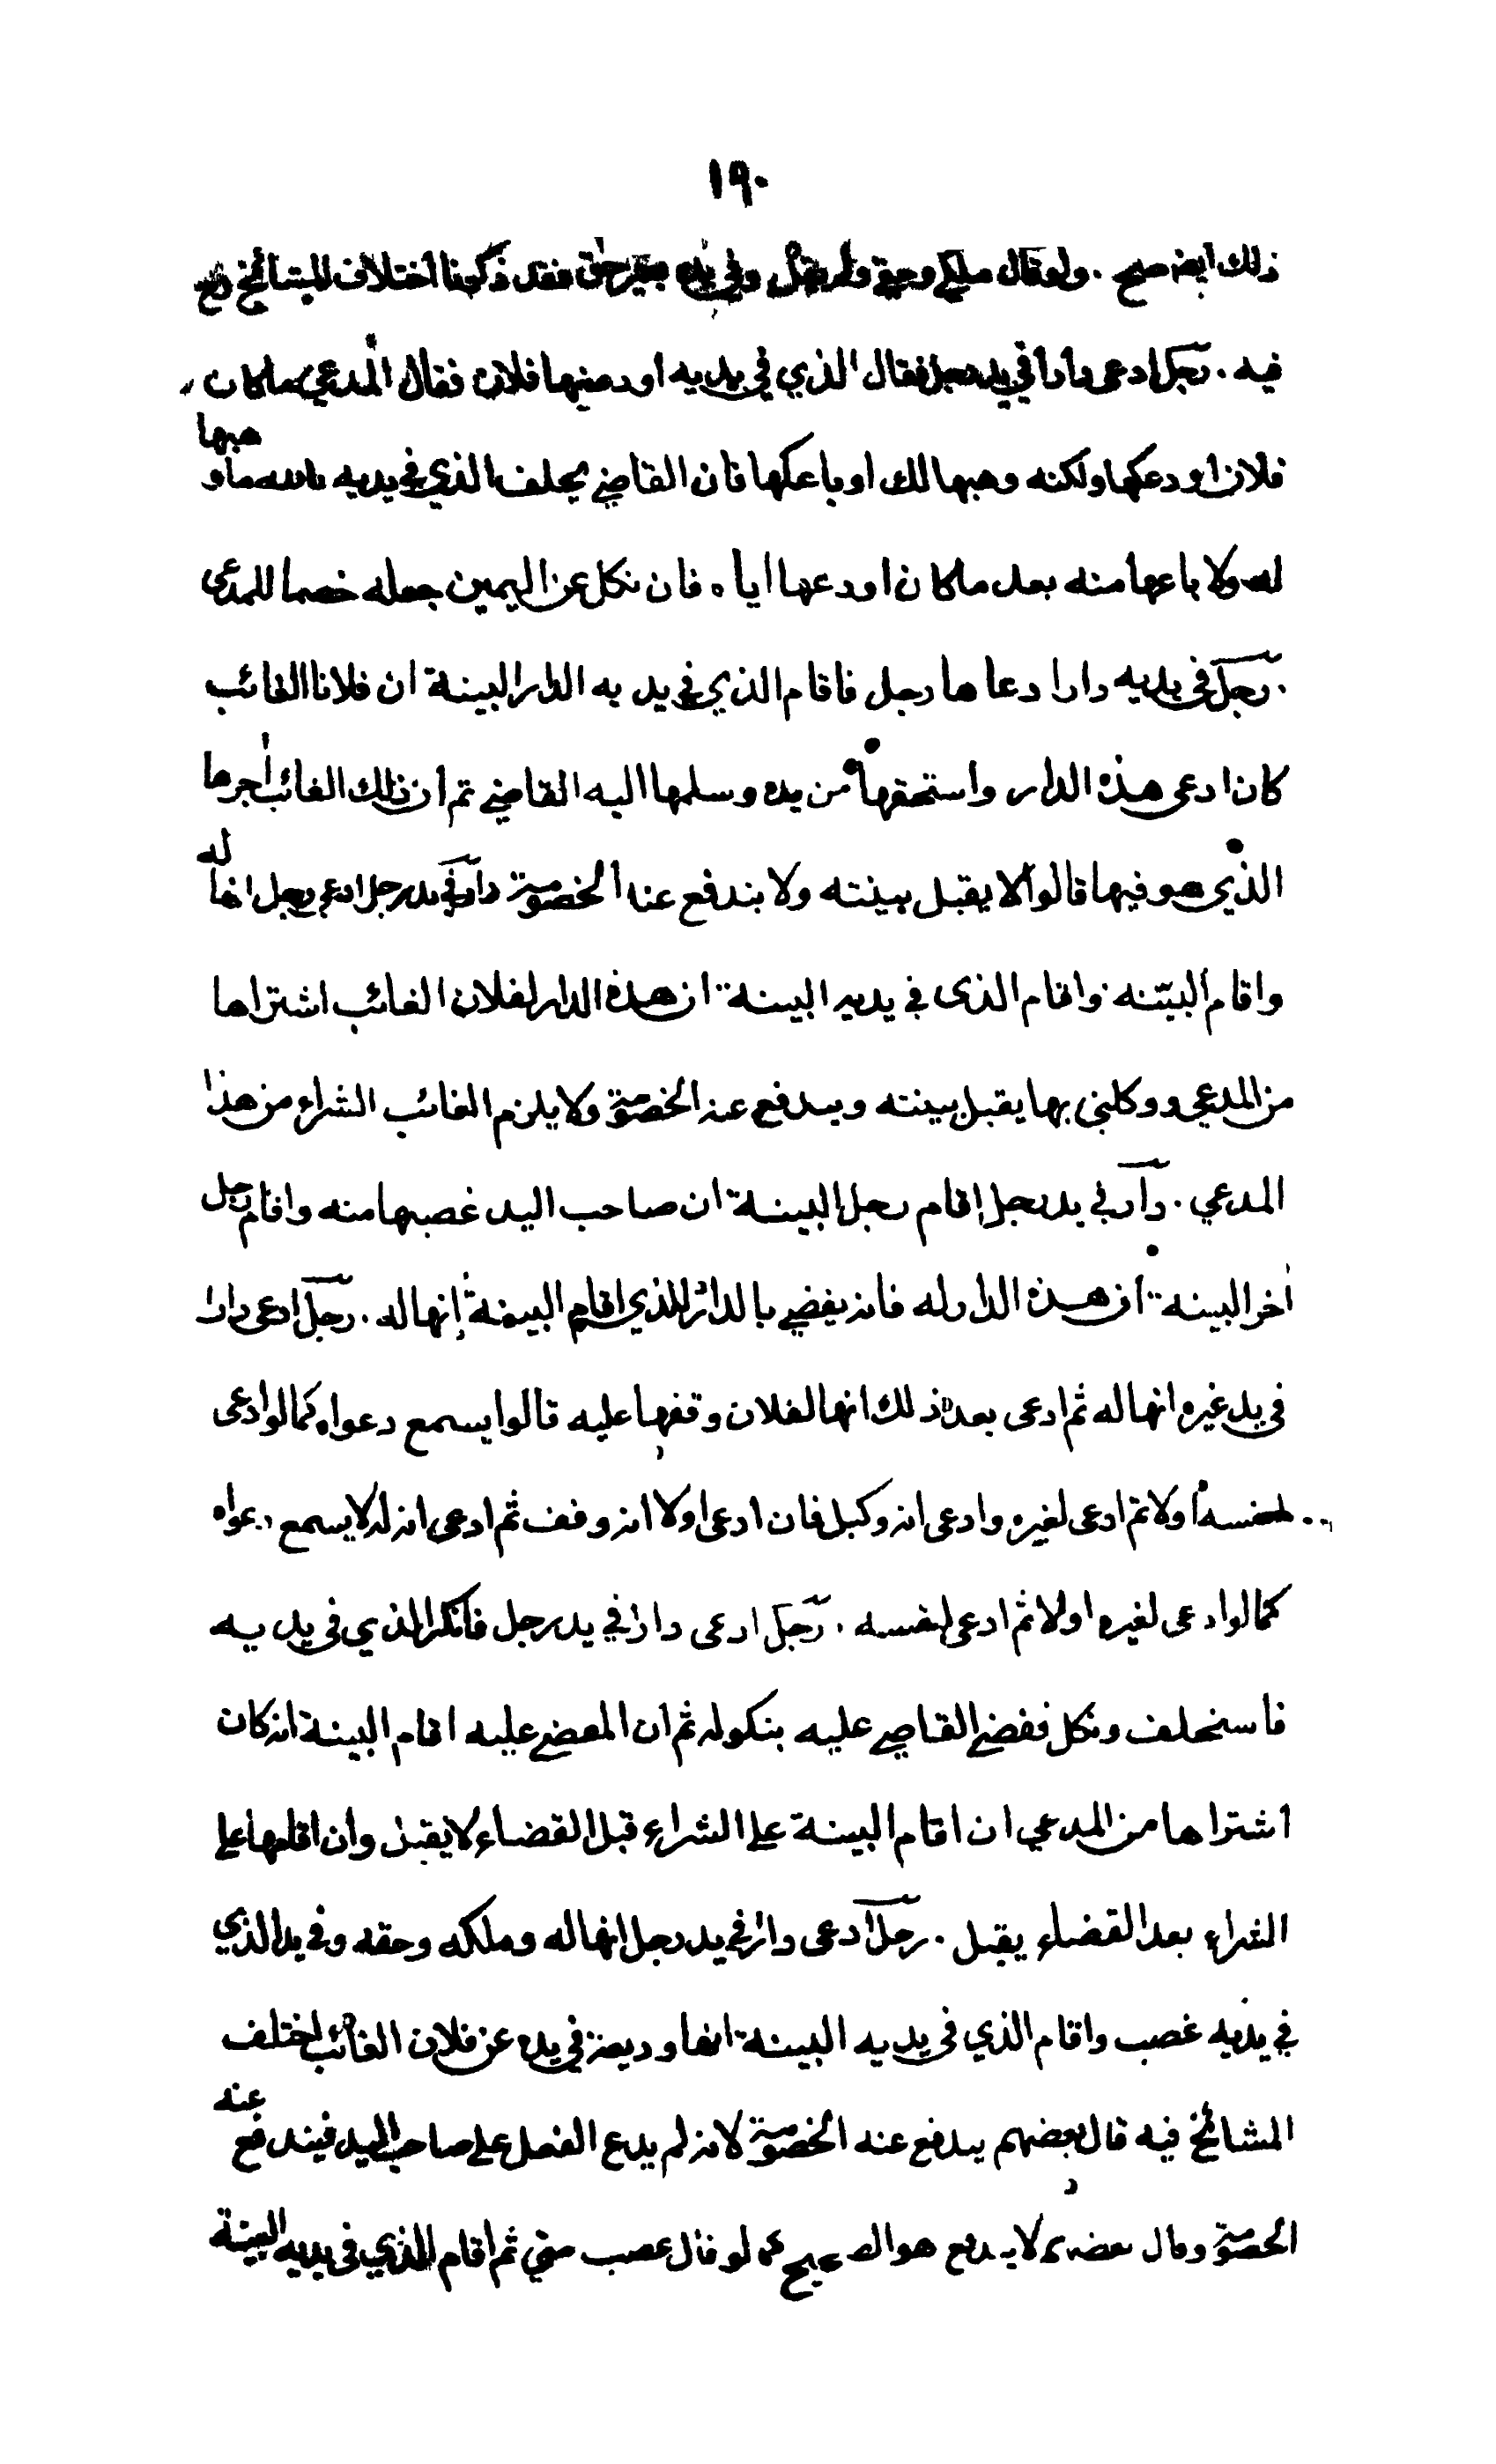 ١٩٠
ذلك ايض صح . ولو قال ملكي وحقي ولم يقل وفي يده بغير حق فقد ذكرنا اختلاف المشائخ رح
فيه . رجل ادعى دارا في يد رجل فقال الذي في يديه اودعنيها فلان فقال المدعي ما كان
فلان اودعكها ولكنه وهبها لك او باعكها فان القاضي يحلف الذي في يديه بالله ما وهبها
له ولا باعها منه بعد ما كان اودعها اياه فان نكل عن اليمين جعله خصما للمدعى
. رجل في يديه دار ادعاها رجل فاقام الذي في يديه الدار البينة ان فلانا الغائب
كان ادعى هذه الدار واستحقها من يده وسلمها اليه القاضي ثم ان ذلك الغائب اجرها
الذي هو فيها قالوا لا يقبل بينته ولا يندفع عنه الخصومة دار في يد رجل ادعى رجل انها له
واقام البينه واقام الذى في يديه البينة ان هذه الدار لفلان الغائب اشتراها
من المدعي ووكلني بها يقبل بينته ويندفع عنه الخصومة ولا يلزم الغائب الشراء من هذا
المدعي . دار في يد رجل اقام رجل البينة ان صاحب اليد غصبها منه واقام رجل
اخر البينه ان هذه الدار له فانه يقضي بالدار للذي اقام البينة انها له . رجل ادعى دارا
في يد غيره انها له ثم ادعى بعد ذلك انها لفلان وقفها عليه قالوا يسمع دعواه كما لو ادعى
لنفسه اولا ثم ادعى لغيره وادعى انه وكيل فان ادعى اولا انه وقف ثم ادعى انه له لا يسمع دعواه
كما لو ادعى لغيره اولا ثم ادعى لنفسه . رجل ادعى دارا في يد رجل فانكر الذي في يديه
فاستحلف ونكل فقضى القاضي عليه بنكوله ثم ان المقضي عليه اقام البينة انه كان
اشتراها من المدعي ان اقام البينة على الشراء قبل القضاء لا يقبل وان اقامها على
الشراء بعد القضاء يقبل . رجل ادعى دارا في يد رجل انها له وملكه وحقه وفي يد الذي
في يديه غصب واقام الذي في يديه البينة انها وديعة في يده عن فلان الغائب اختلف
المشائخ فيه قال بعضهم يندفع عنه الخصومة لانه لم يدع الفعل على صاحب اليد فيندفع عنه
الخصومة وقال بعضهم لا يندفع هو الصحيح كما لو قال غصب مني ثم اقام الذي في يديه البينة